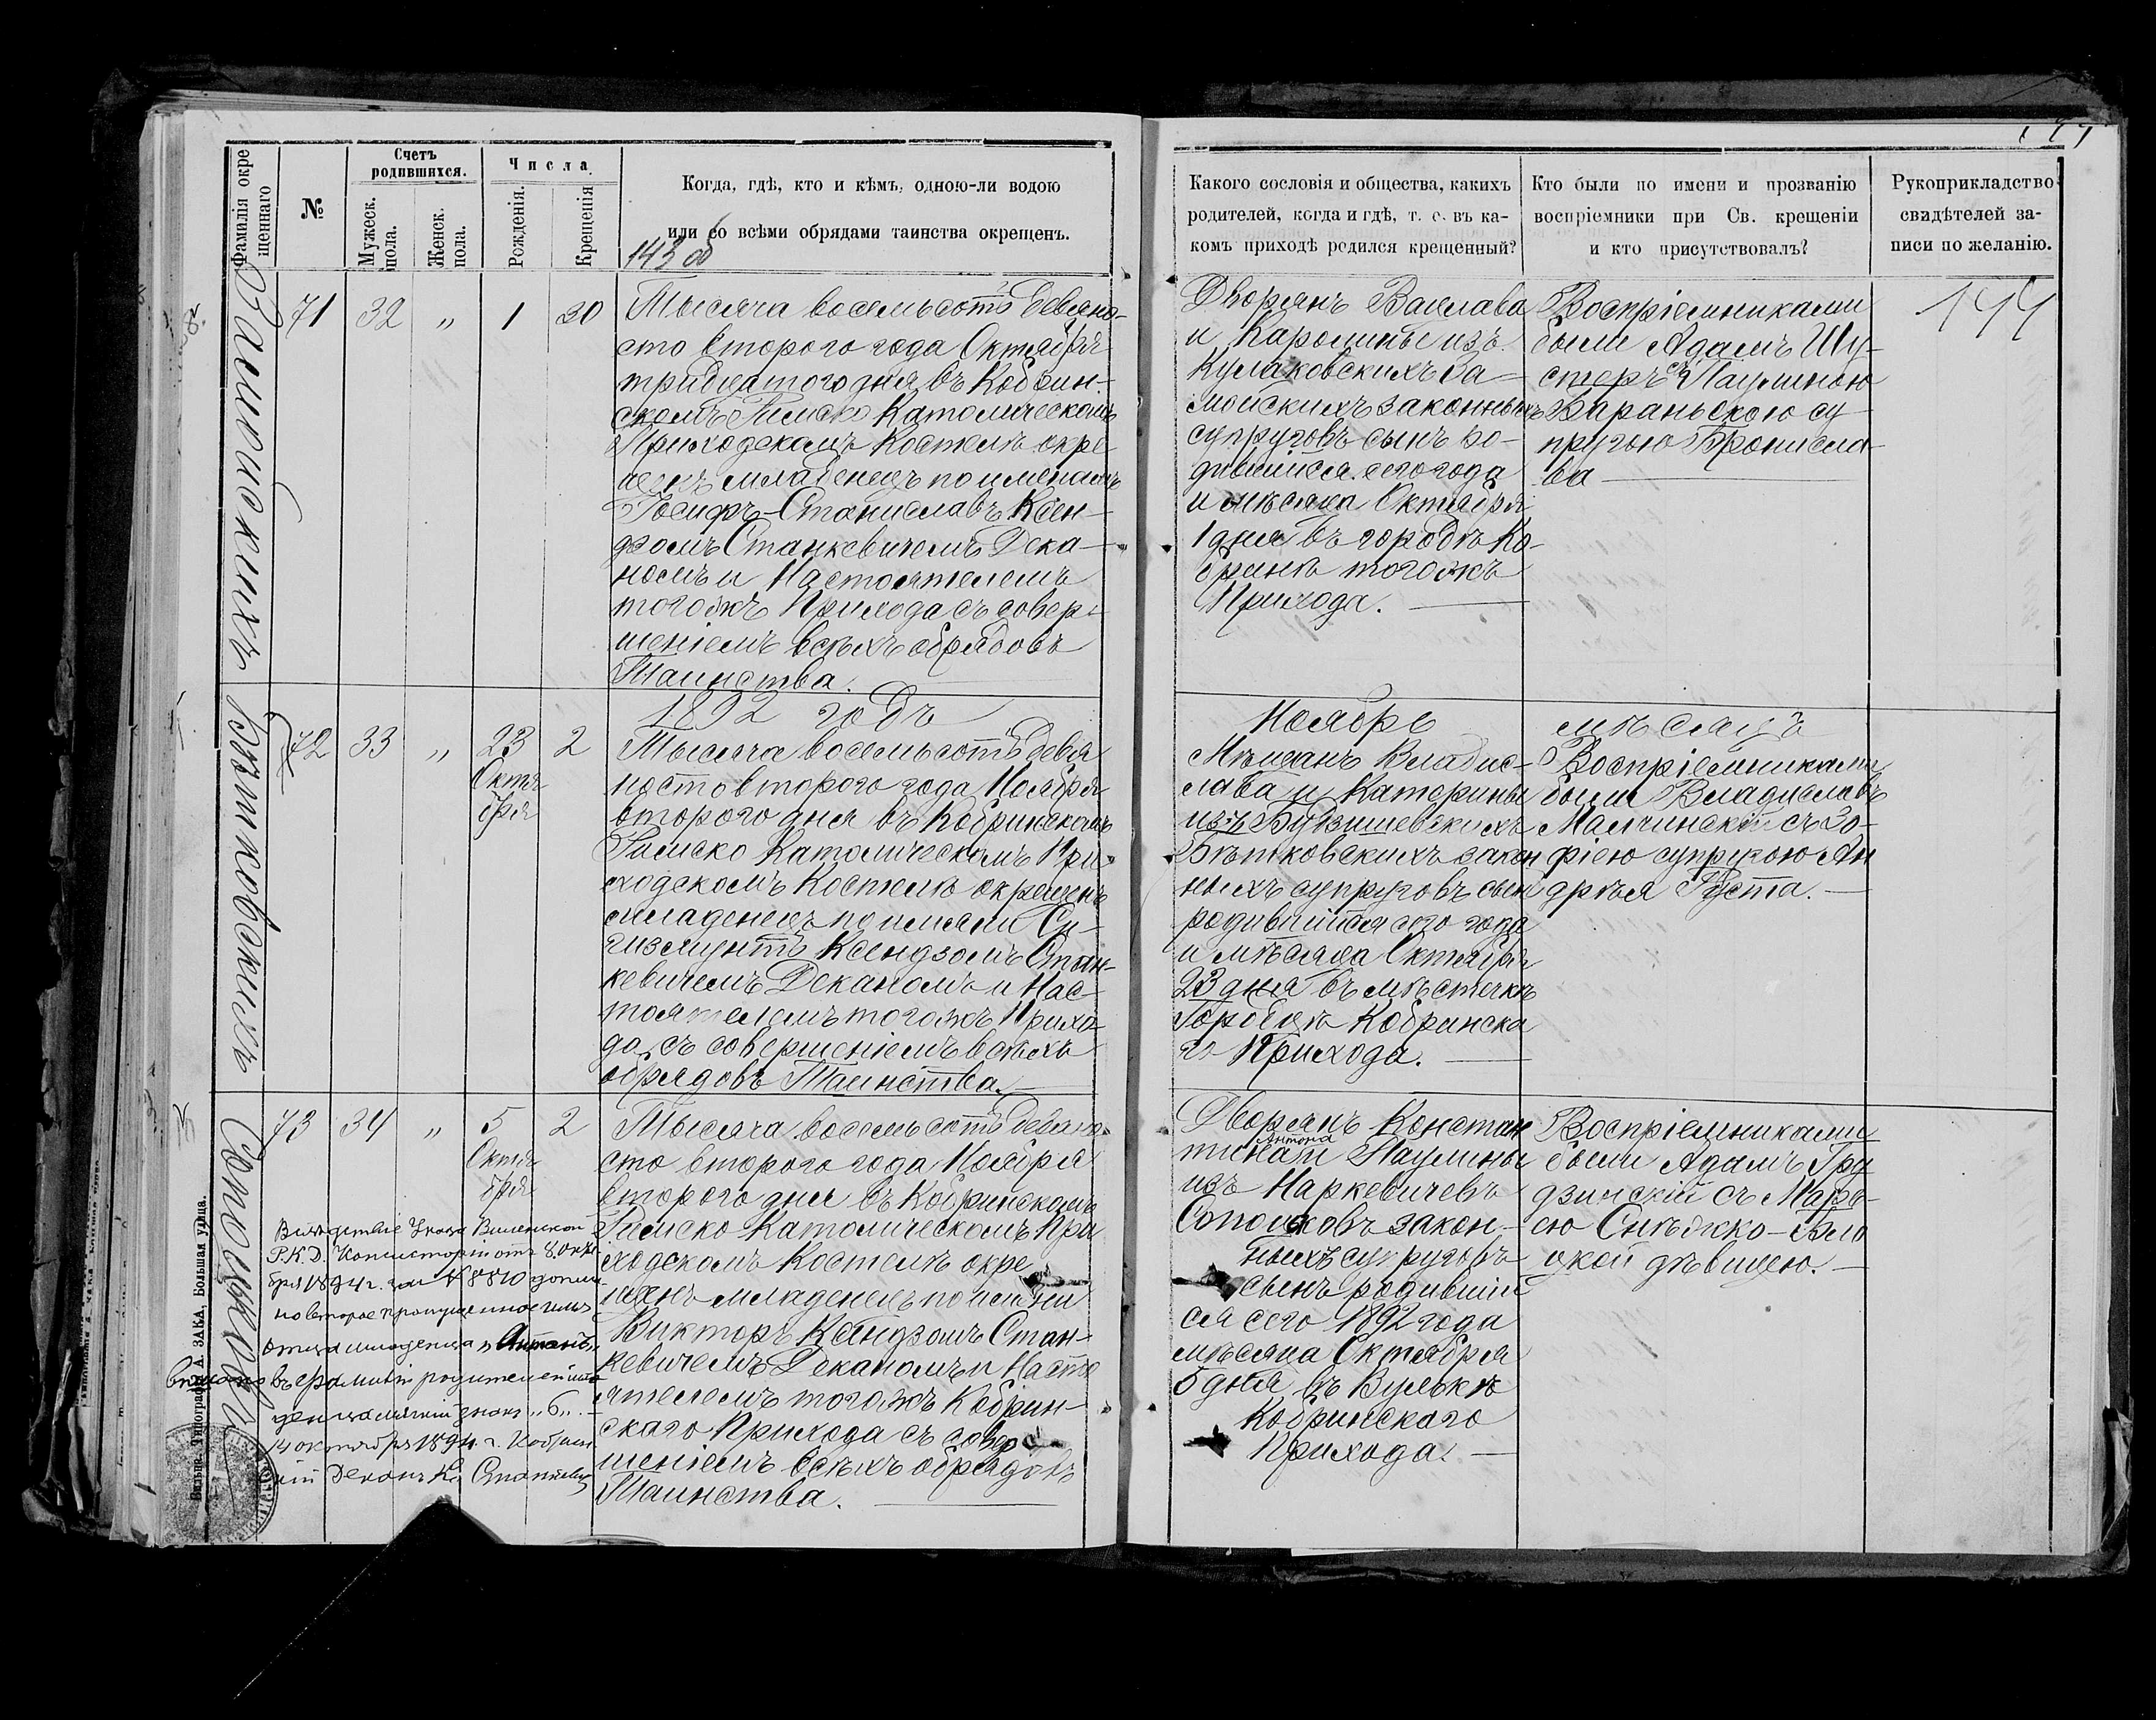 Фамилія окре
щеннаго
№
Счетъ
родившихся.
Мужеск.
пола.
Женск.
пола.
Числа
Рожденія.
Крещенія
Когда, гдѣ, кто и кѣмъ, одною-ли водою
или со всѣми обрядами таинства окрещенъ.
143 об
Замойскихъ
71
32
"
1
30
Тысяча восемьсотъ девяно-
сто второго года Октября
тридцатого дня въ Кобрин-
скомъ Римско Католическомъ
Приходскомъ Костелѣ окре
щенъ младенецъ по именамъ
Іосифъ-Станиславъ Ксен-
дзомъ Станкевичемъ Дека-
номъ и Настоятелемъ
тогожъ Прихода съ совер-
шеніемъ всѣхъ обрядовъ
Таинства.
1892 годъ
Бѣтковскихъ
72
33
"
23
Октя
бря
2
Тысяча восемьсотъ девя
носто второго года Ноября
второго дня въ Кобринскомъ
Римско Католическомъ При-
ходскомъ Костелѣ окрещенъ
младенецъ по имени Си-
гизмунтъ Ксендзомъ Стан-
кевичемъ Деканомъ и Нас-
тоятелемъ тогожъ Прихо-
да съ совершеніемъ всѣхъ
обрядовъ Таинства.
Сопоцковъ
73
34
"
5
Октя
бря
2
Тысяча восемьсотъ девяно-
сто второго года Ноября
второго дня въ Кобринскомъ
Римско Католическомъ При
ходскомъ Костелѣ окре
щенъ младенецъ по имени
Викторъ Ксендзомъ Стан-
кевичемъ Деканомъ и Насто
ятелемъ тогожъ Кобрин-
скаго Прихода съ совер
шеніемъ всѣхъ обрядовъ
Таинства.
Вслѣдствіе Указа Виленской
Р.К.Д. Консисторіи отъ 8 Октя-
бря 1894 г. за № 8810 допол-
но второе пропущенное имя
отца младенца „Антонъ„
въ фамиліи родителей мла
денца мягкій знакъ „ь„
14 октября 1894 г. Кобрин
кій Деканъ Кс Станкевичъ
Вильна. Типографія А. ЗАКА. Большая улица.
Какого сословія и общества, какихъ
родителей, когда и гдѣ, т. е. въ ка-
комъ приходѣ родился крещенный?
Кто были по имени и прозванію
воспріемники при Св. крещеніи
и кто присутствовалъ?
Рукоприкладство
свидѣтелей за-
писи по желанію.
144
Дворянъ Вацлава
и Каролины изъ
Кулаковскихъ За-
мойскихъ законныхъ
супруговъ сынъ ро-
дившійся сего года
и мѣсяца Октября
1 дня въ городѣ Ко-
бринѣ тогожъ
Прихода.
Воспріемниками
были Адамъ Шу-
стеръ съ Паулиною
Бараньскою су-
пругою Бронисла-
ва
Ноябрь
мѣсяцъ
Мѣщанъ Владис-
лава и Катерины
изъ Букишевскихъ
Бѣтковскихъ закон
ныхъ супруговъ сынъ
родившійся сего года
и мѣсяца Октября
23 дня въ мѣстечкѣ
Городцѣ Кобринска
го Прихода.
Воспріемниками
были Владиславъ
Малчинскій съ Зо-
фіею супругою Ан
дрѣя Руста.
Дворянъ Констан
Антона
тина и Паулины
изъ Наркевичевъ
Сопоцковъ закон-
ныхъ супруговъ
сынъ родившій
ся сего 1892 года
мѣсяца Октября
5 дня въ Вулькѣ
Кобринскаго
Прихода.
Воспріемниками
были Адамъ Гру
дзинскій съ Марь-
ею Снѣжко-Бло
цкой дѣвицею.